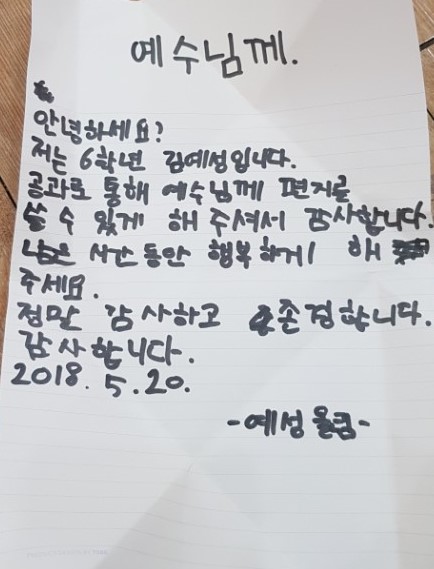 예수님께.
안녕하세요?
저는 6학년 김예성입니다.
공과로 통해 예수님께 편지를
쓸 수 있게 해 주셔서 감사합니다.
남은 시간 동안 행복하게 해
주세요.
정말 감사하고 존경합니다.
감사합니다.
2018. 5. 20.
-예성 올림-